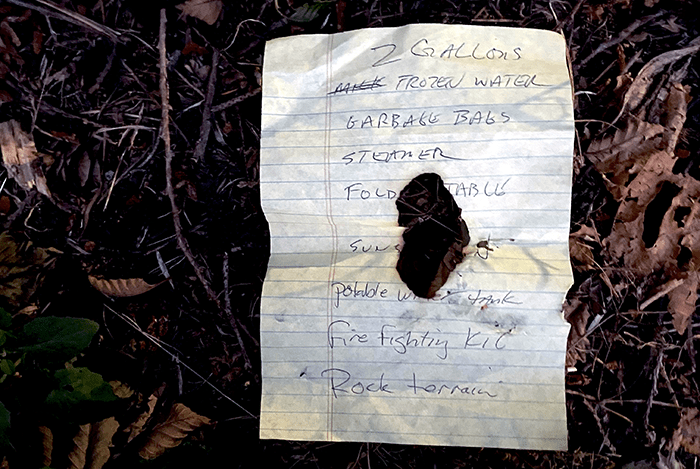 2 GALLONS
FROZEN WATER
GARBAGE BAGS
STEAMER
FOLD TABLE
SUN
potable tank
Fire fighting Kit
Rock terrain